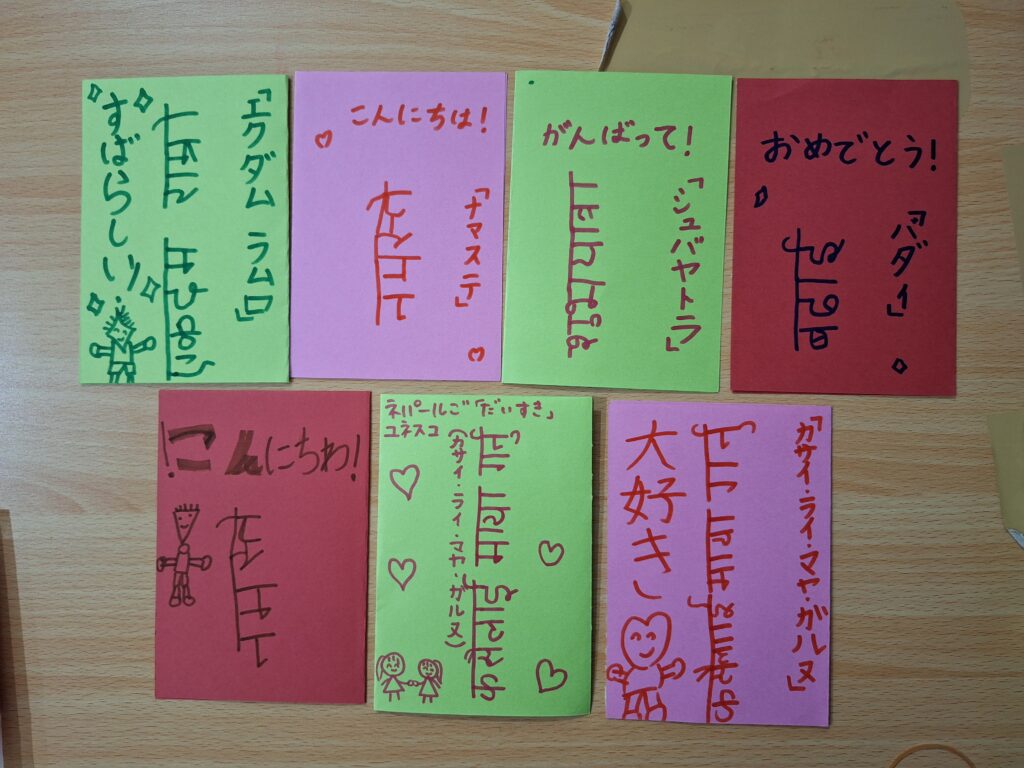 「エクダム ラムロ」
すばらしい!
こんにちは!
「ナマステ」
नमस्ते
がんばって!
「シュバヤトラ」
शुभयात्रा
おめでとう!
「バダイ」
बधाई
!こんにちわ!
नमस्ते
ネパールご「だいすき」
ユネスコ
(カサイ・ライ・マヤ・ガルヌ)
कसैलाई माया गर्नु
「カサイ・ライ・マヤ・ガルヌ」
कसैलाई माया गर्नु
大好き